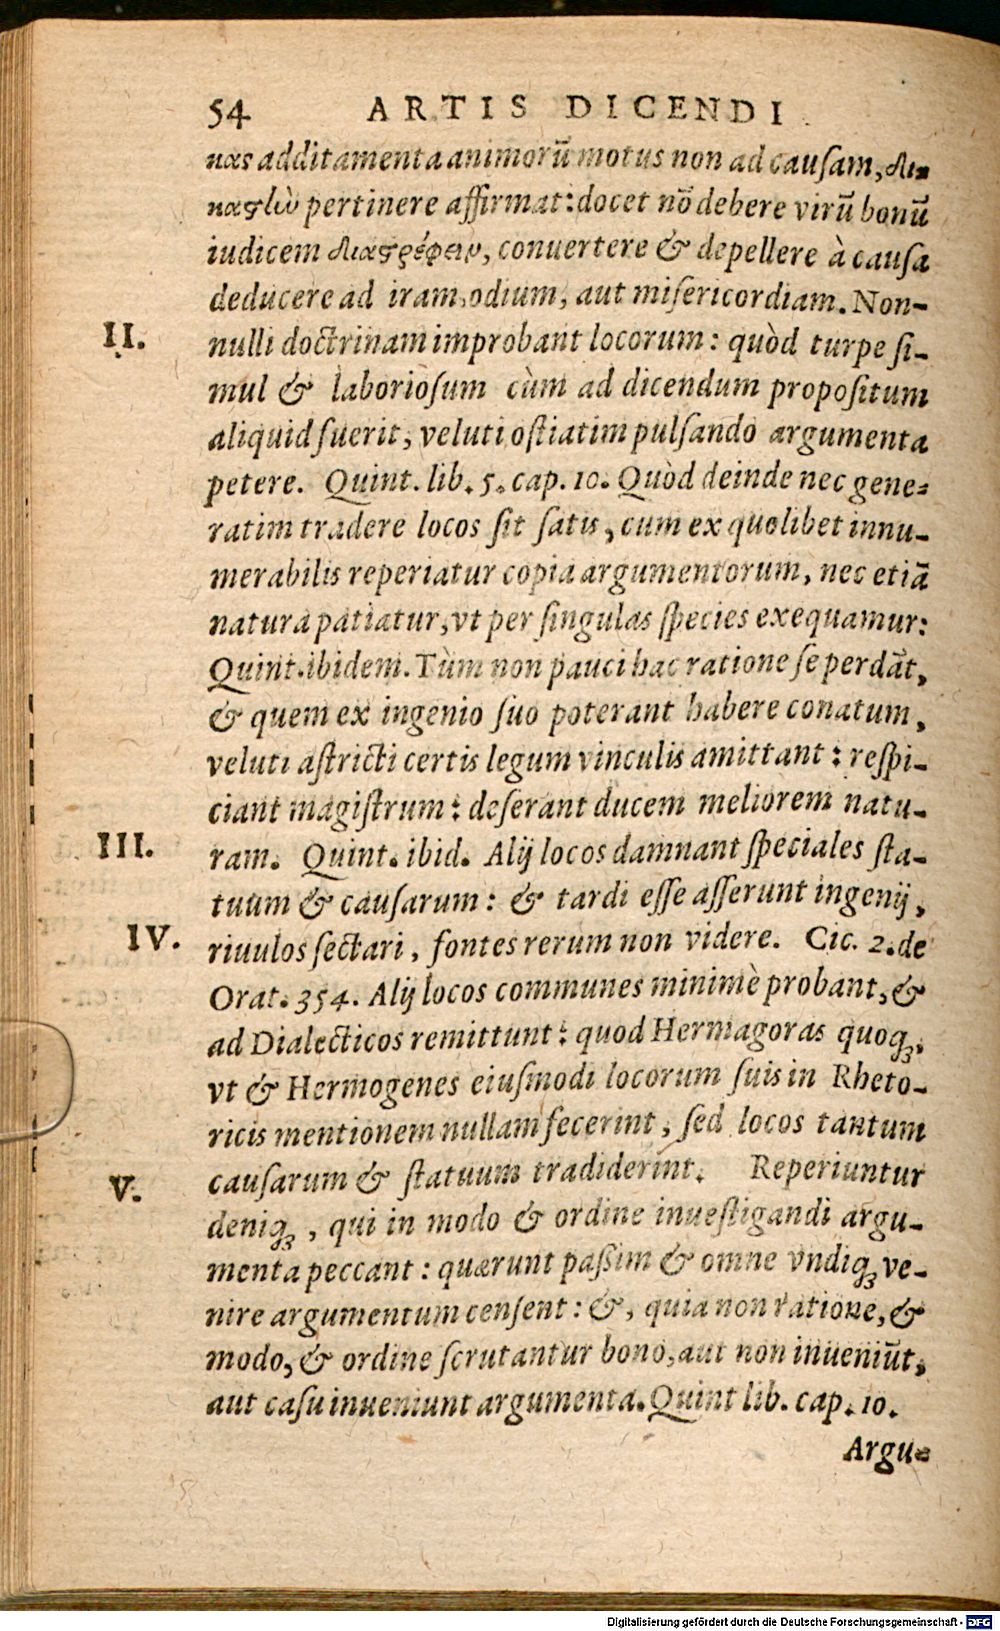 54 ARTIS DICENDI
κας additamenta animorū motus non ad cauſam, δι-
καςὴν pertinere affirmat: docet nō debere virū bonū
iudicem διαςρέφειν, conuertere & depellere à cauſa
deducere ad iram, odium, aut miſericordiam. Non-
II. nulli doctrinam improbant locorum: quòd turpe ſi-
mul & laborioſum cùm ad dicendum propoſitum
aliquid fuerit, veluti oſtiatim pulſando argumenta
petere. Quint. lib. 5. cap. 10. Quòd deinde nec gene-
ratim tradere locos ſit ſatis, cum ex quolibet innu-
merabilis reperiatur copia argumentorum, nec etiā
natura patiatur, vt per ſingulas ſpecies exequamur:
Quint. ibidem. Tùm non pauci hac ratione ſe perdāt,
& quem ex ingenio ſuo poterant habere conatum,
veluti aſtricti certis legum vinculis amittant: reſpi-
ciant magiſtrum: deſerant ducem meliorem natu-
III. ram. Quint. ibid. Alij locos damnant ſpeciales ſta-
tuum & cauſarum: & tardi eſſe aſſerunt ingenij,
IV. riuulos ſectari, fontes rerum non videre. Cic. 2. de
Orat. 354. Alij locos communes minimè probant, &
ad Dialecticos remittunt: quod Hermagoras quoqꝫ,
vt & Hermogenes eiuſmodi locorum ſuis in Rheto-
ricis mentionem nullam fecerint, ſed locos tantum
V. cauſarum & ſtatuum tradiderint. Reperiuntur
deniqꝫ, qui in modo & ordine inueſtigandi argu-
menta peccant: quærunt paßim & omne vndiqꝫ ve-
nire argumentum cenſent: &, quia non ratione, &
modo, & ordine ſcrutantur bono, aut non inueniūt,
aut caſu inueniunt argumenta. Quint lib. cap. 10.
Argu-
Digitalisierung gefördert durch die Deutsche Forschungsgemeinschaft - DFG